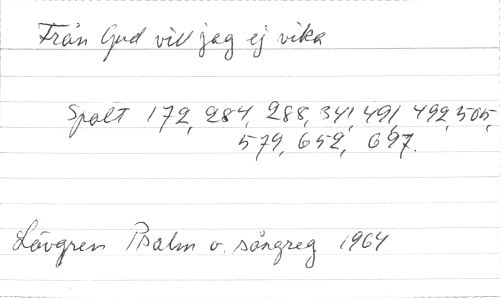 Från Gud vill jag ej vika
Spalt 172, 284, 288, 341, 491, 492, 505,
579, 652, 697.
Lövgren Psalm o. sångreg 1964